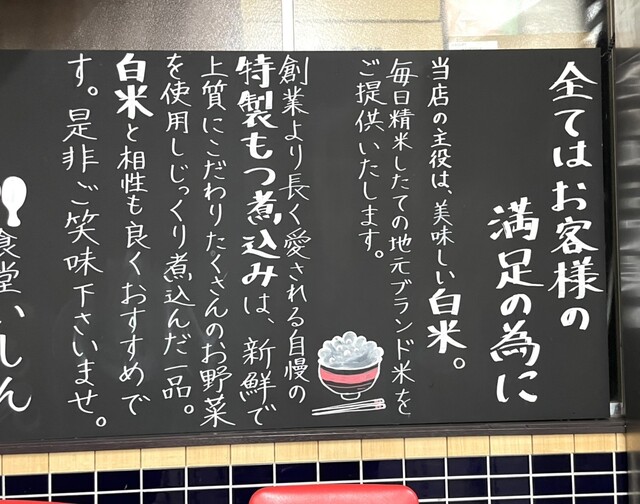 全てはお客様の
満足の為に
当店の主役は、美味しい白米。
毎日精米したての地元ブランド米を
ご提供いたします。
創業より長く愛される自慢の
特製もつ煮込みは、新鮮で
上質にこだわりたくさんのお野菜
を使用しじっくり煮込んだ一品。
白米と相性も良くおすすめで
す。是非ご笑味下さいませ。
食堂いしん